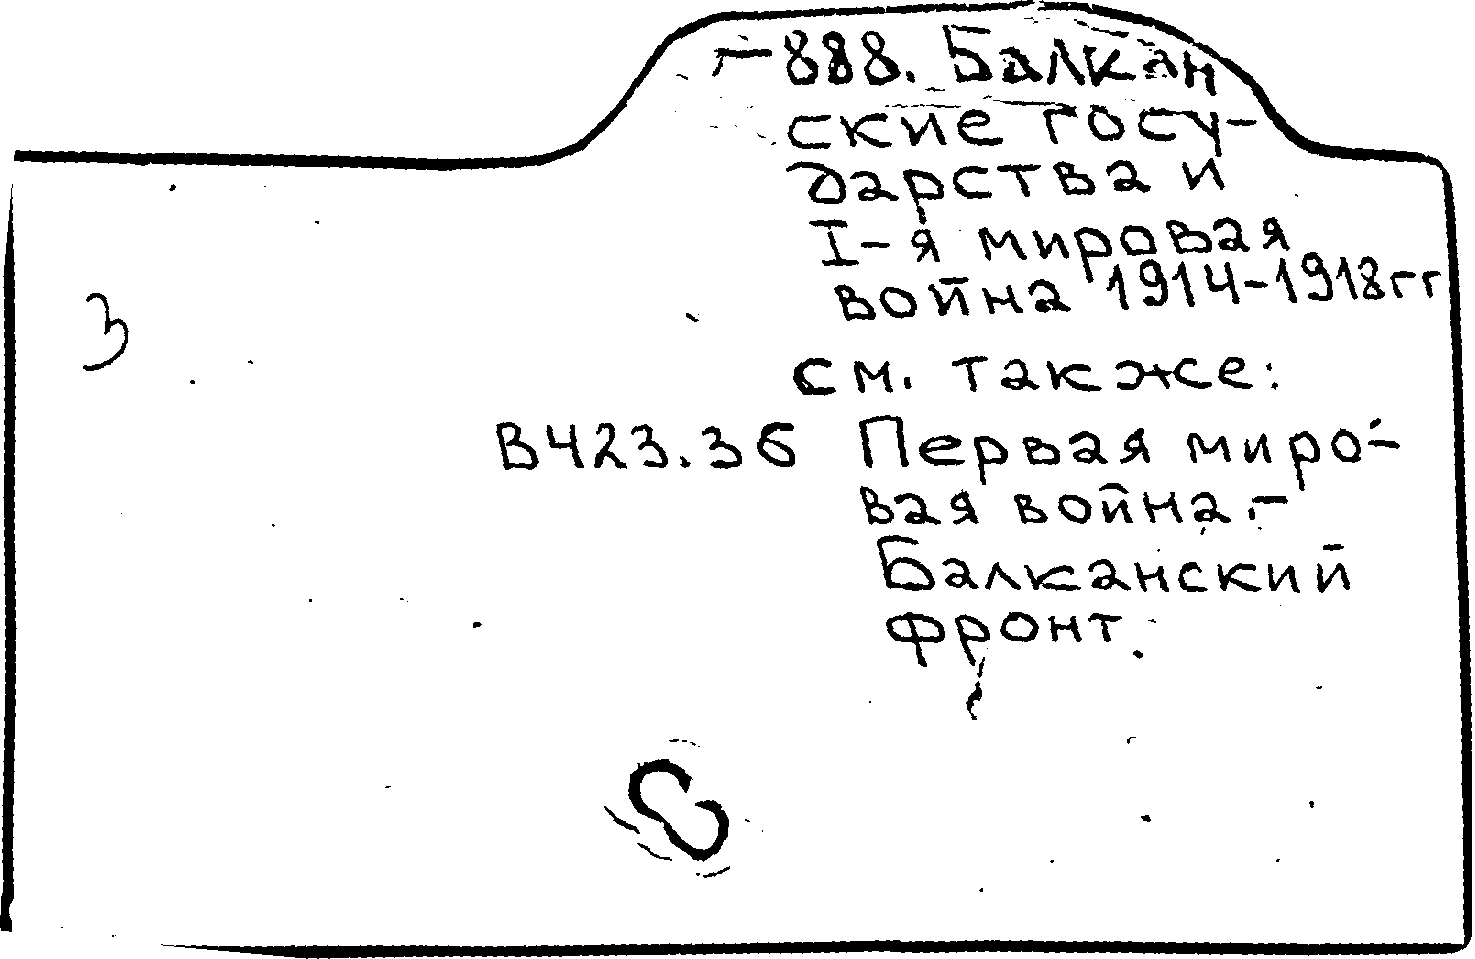 –888. Балкан
ские госу-
дарства и
I-я мировая
война 1914-1918гг
3
см. также:
В423.36 Первая миро-
вая война.–
Балканский
фронт.